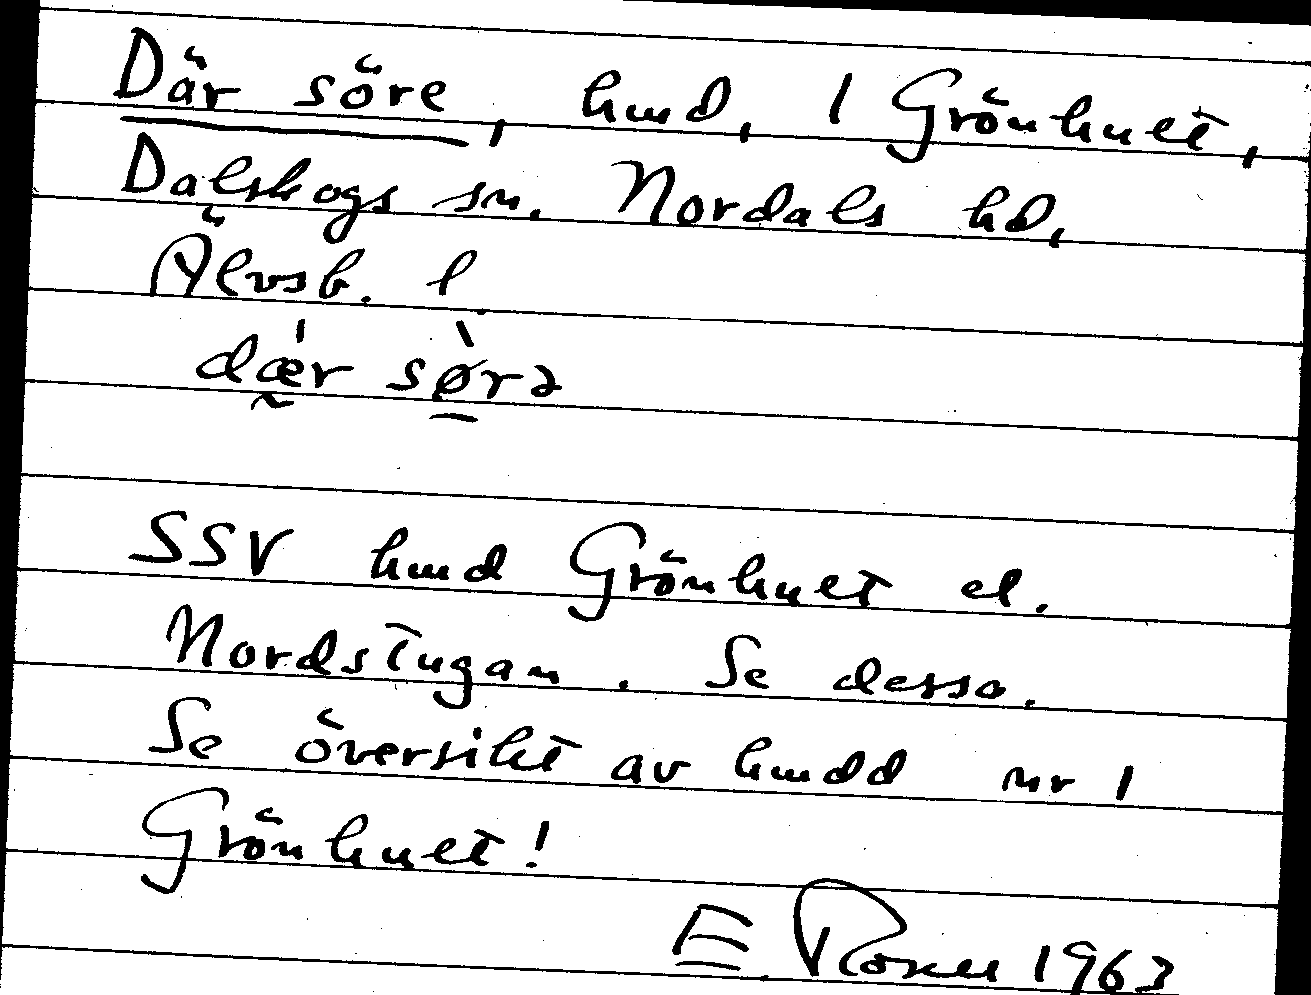 Där söre, hmd, 1 Grönhult,
Dalskogs sn. Nordals hd,
Älvsb. l.
dǽ̰r sø̱̀rə
SSV hmd Grönhult el.
Nordstugan. Se dessa.
Se översikt av hmdd nr 1
Grönhult!
E. Rosell 1963